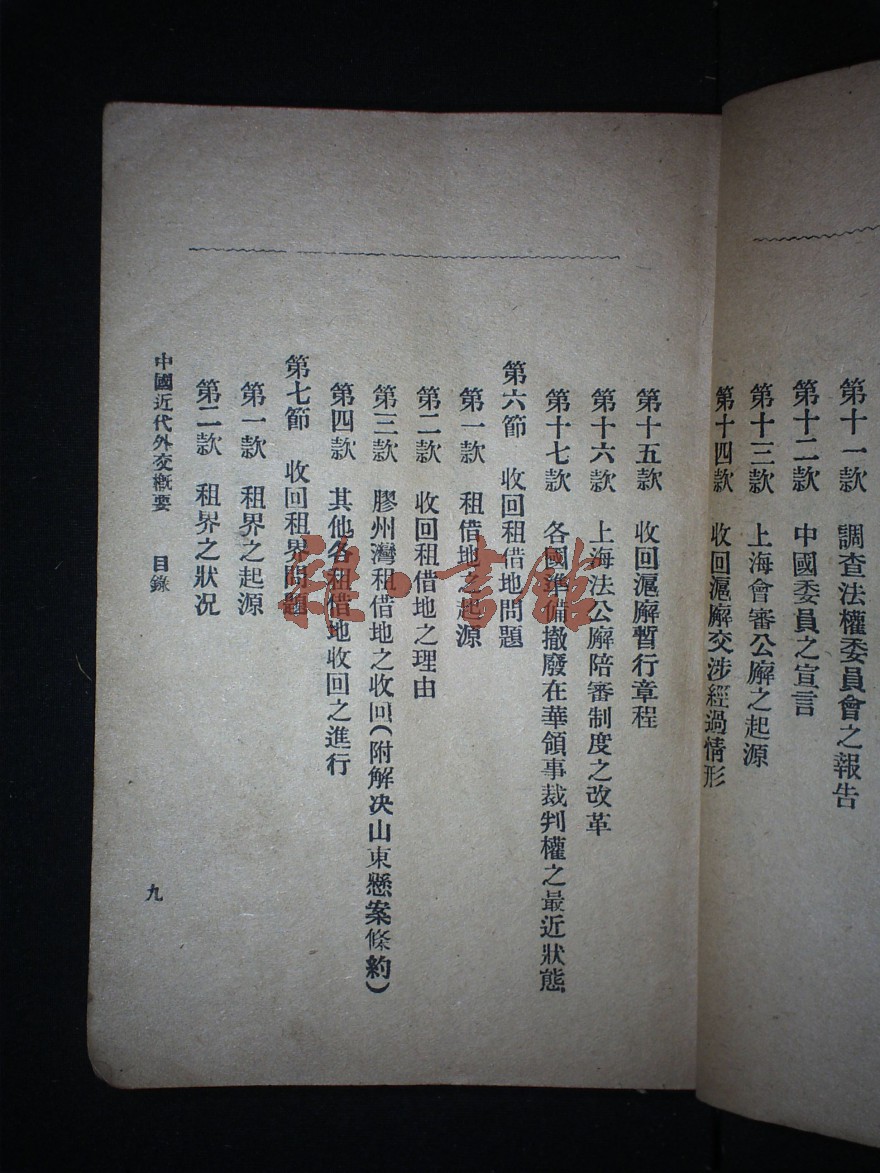 第十一款　調查法權委員會之報告
第十二款　中國委員之宣言
第十三款　上海會審公廨之起源
第十四款　收回滬廨交涉經過情形
第十五款　收回滬廨暫行章程
第十六款　上海法公廨陪審制度之改革
第十七款　各國準備撤廢在華領事裁判權之最近狀態
第六節　收回租借地問題
第一款　租借地之起源
第二款　收回租借地之理由
第三款　膠州灣租借地之收回（附解决山東懸案條約）
第四款　其他各租借地收回之進行
第七節　收回租界問題
第一款　租界之起源
第二款　租界之狀况
中國近代外交槪要　目錄
九
雜·書館